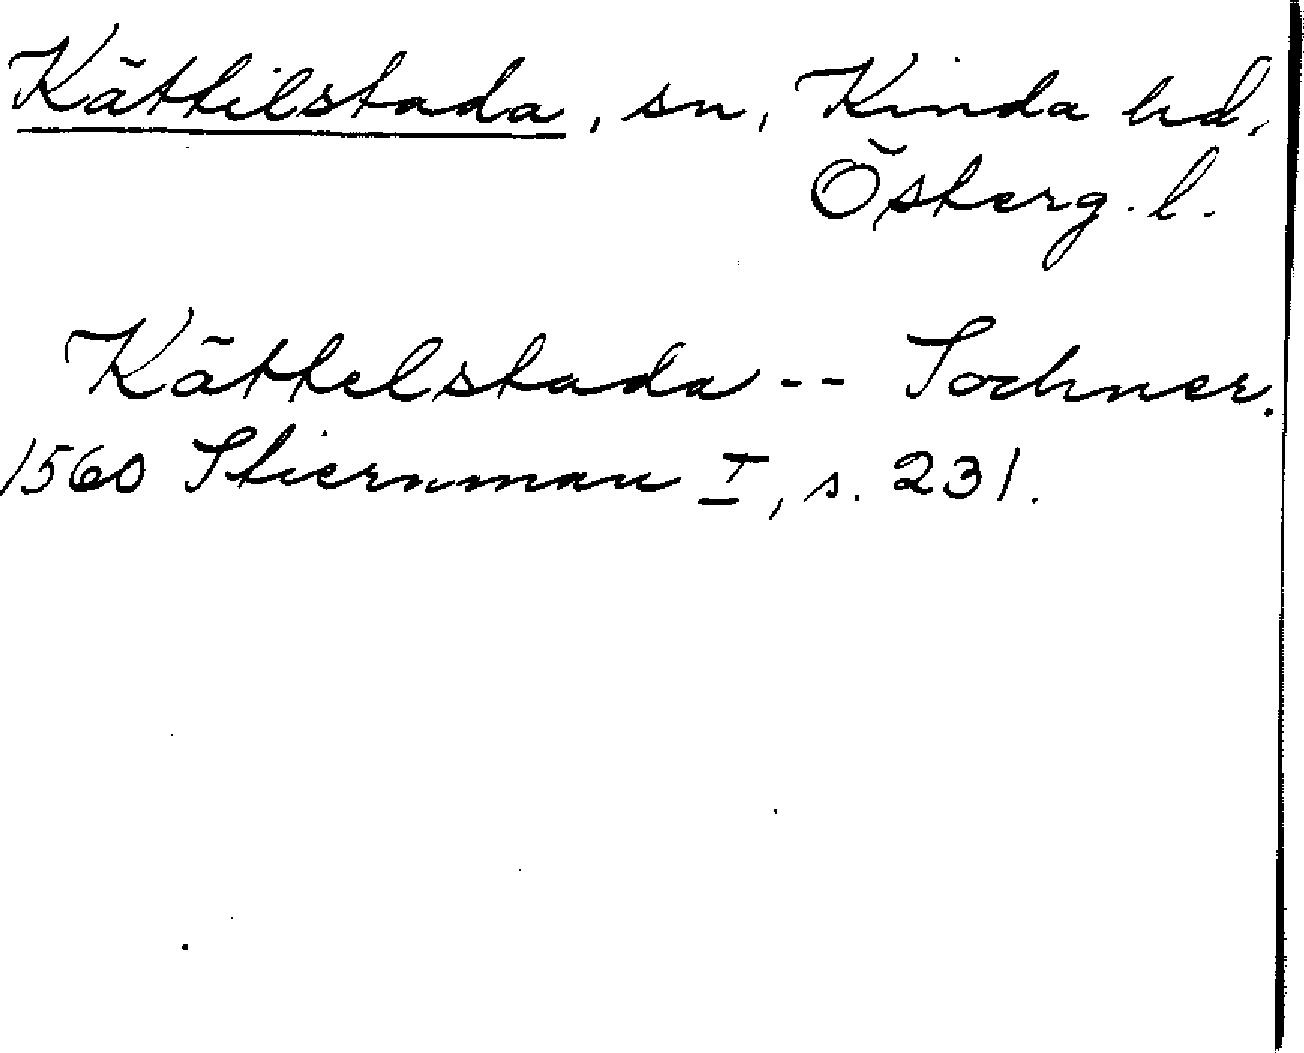 Kättilstada, sn, Kinda hd,
Österg. l.
Kättelstada -- Sochner.
1560 Stiernman I, s. 231.